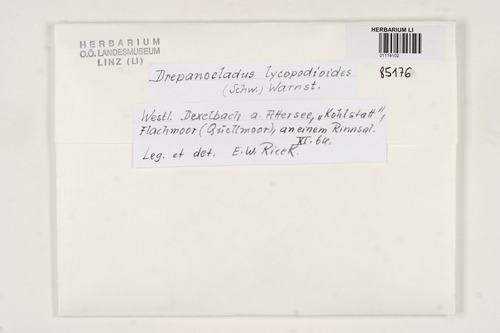 HERBARIUM
O.Ö. LANDESMUSEUM
LINZ (LI)
HERBARIUM LI
01114102
85176
Drepanocladus lycopodioides
(Schw.) Warnst.
Westl. Dexelbach a. Attersee, „Kohlstatt",
Flachmoor (Quellmoor), an einem Rinnsal.
XI. 64.
Leg. et det. E. W. Ricek.